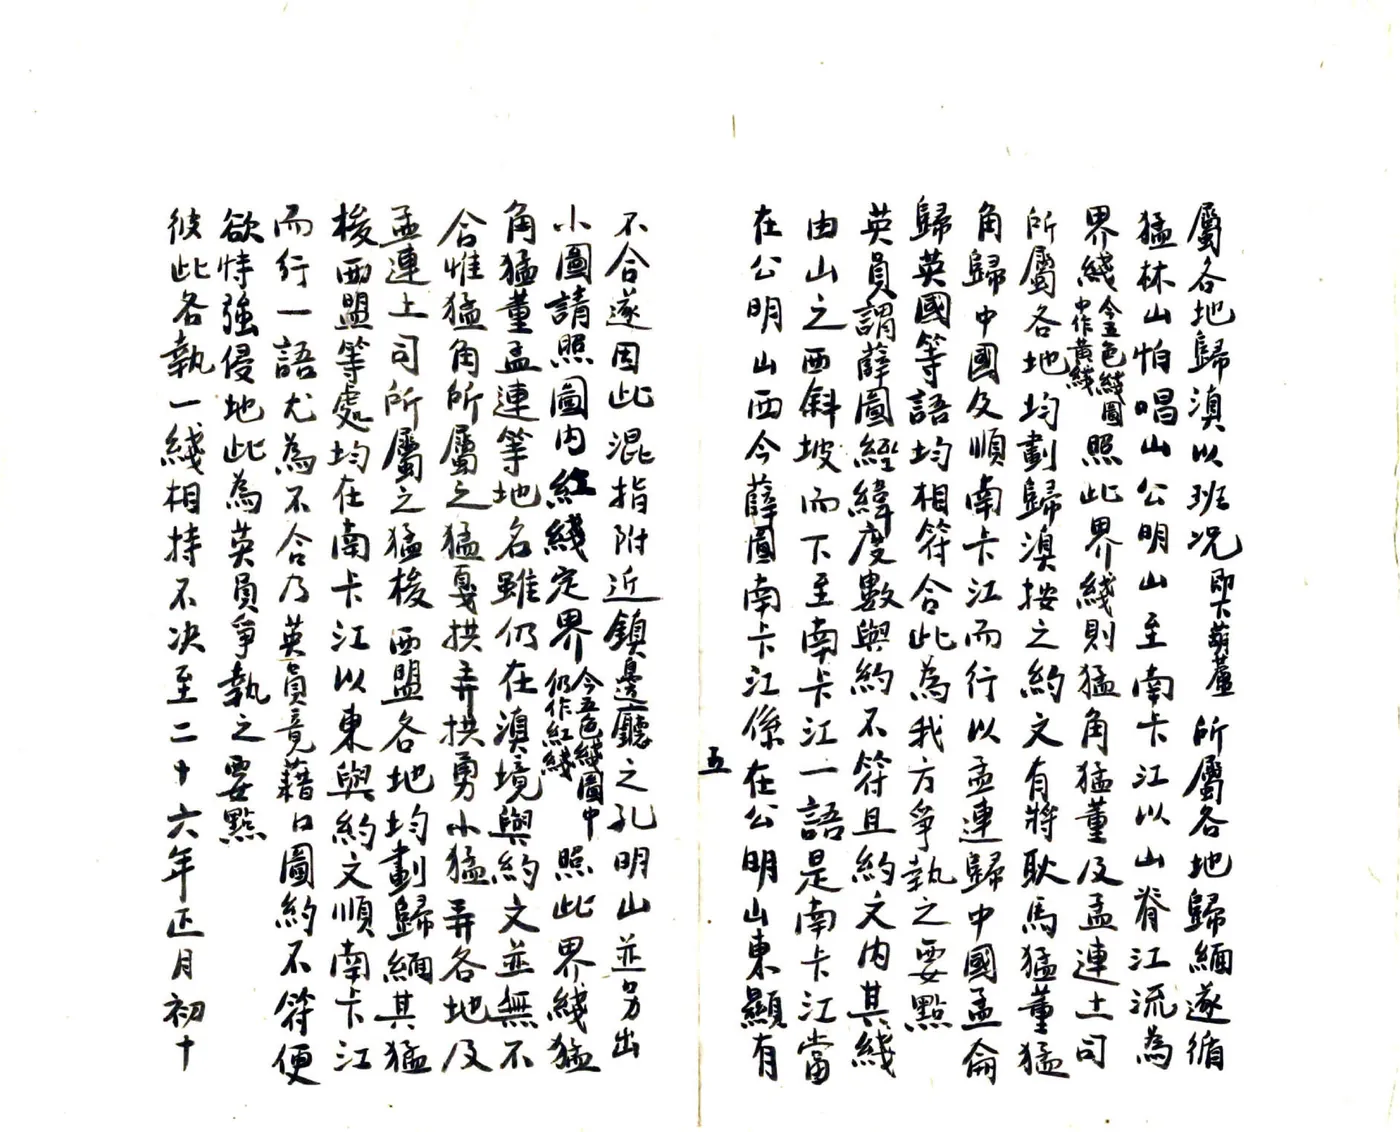 屬各地歸滇以班况即下葫蘆所屬各地歸緬遂循
猛林山怕唱山公明山至南卡江以山脊江流為
界綫今五色綫圖中作黃綫照此界綫則猛角猛董及孟連土司
所屬各地均劃歸滇按之約文有將耿馬猛董猛
角歸中國及順南卡江而行以孟連歸中國孟侖
歸英國等語均相符合此為我方爭執之要點
英員謂薛圖經緯度數與約不符且約文内其綫
由山之西斜坡而下至南卡江一語是南卡江當
在公明山西今薛圖南卡江係在公明山東顯有
五
不合遂因此混指附近鎮邊廳之孔明山並另出
小圖請照圖内紅綫定界今五色綫圖中仍作紅綫照此界綫猛
角猛董孟連等地名雖仍在滇境與約文並無不
合惟猛角所屬之猛戛拱弄拱勇小猛弄各地及
孟連上司所屬之猛梭西盟各地均劃歸緬其猛
梭西盟等處均在南卡江以東與約文順南卡江
而行一語尤為不合乃英員竟藉口圖約不符便
欲恃強侵地此為英員爭執之要點
彼此各執一綫相持不决至二十六年正月初十